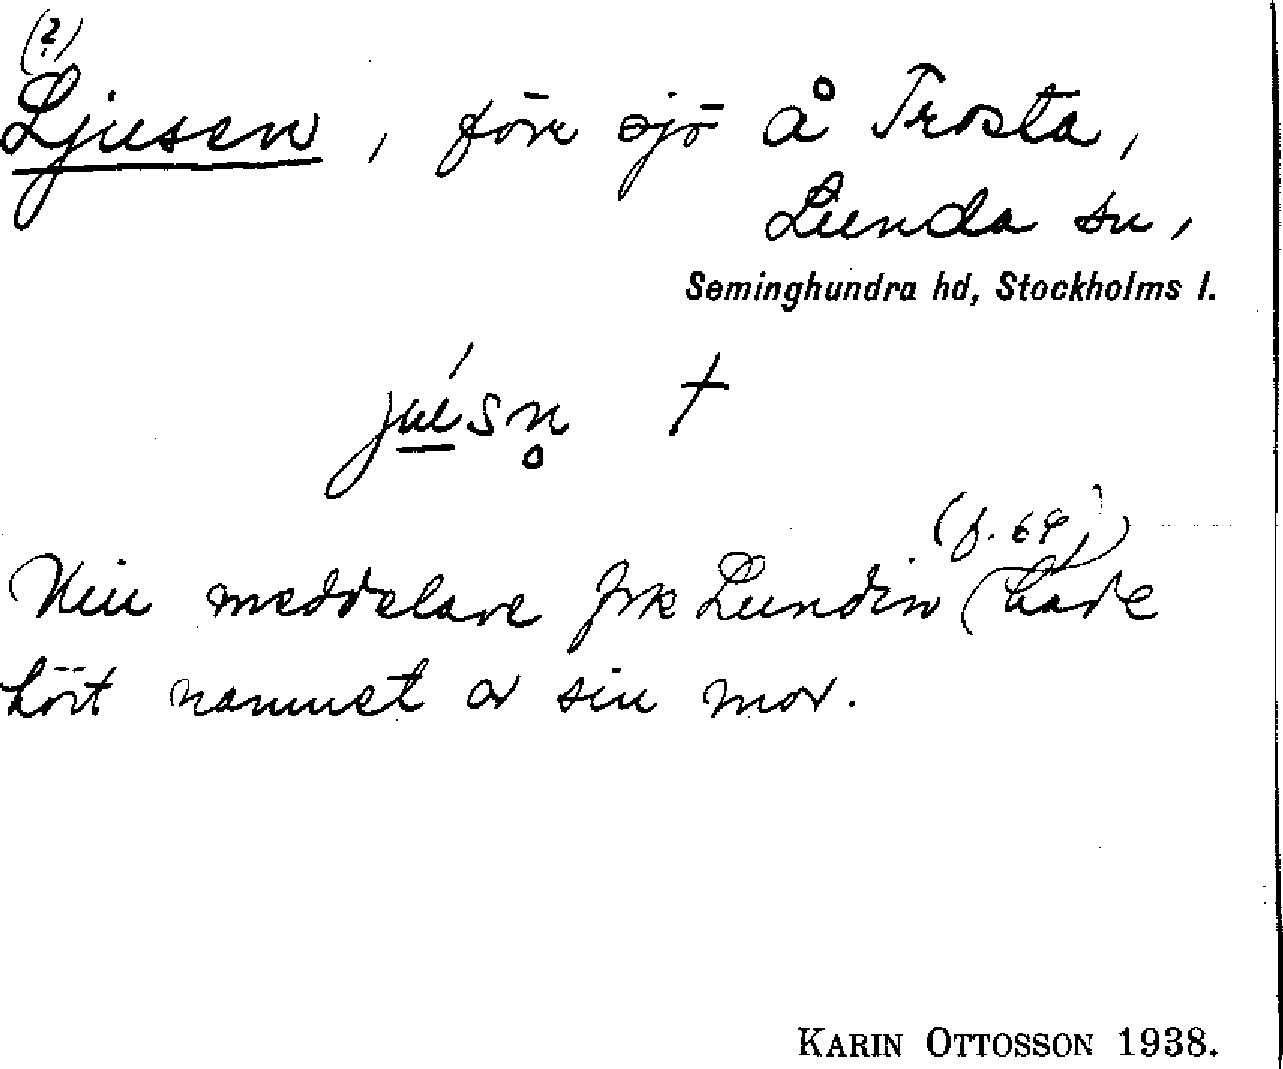 (?)
Ljusen, förv sjö å Trosta,
Lunda sn,
Seminghundra hd, Stockholms l.
júsn̥ †
(f. 69)
Min meddelare frk Lundin hade
hört namnet av sin mor.
KARIN OTTOSSON 1938.